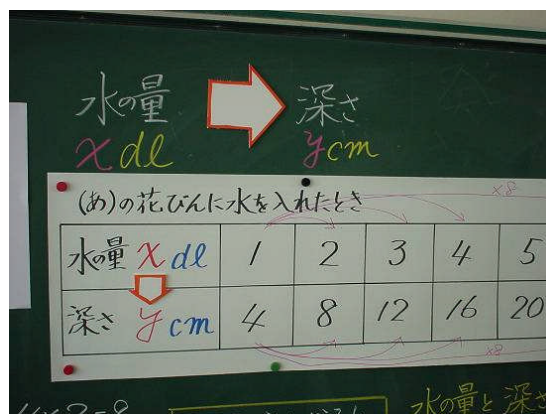 水の量 深さ
xdl ycm
(あ)の花びんに水を入れたとき
×8
水の量 xdl 1 2 3 4 5
深さ ycm 4 8 12 16 20
×8
水の量と深さ